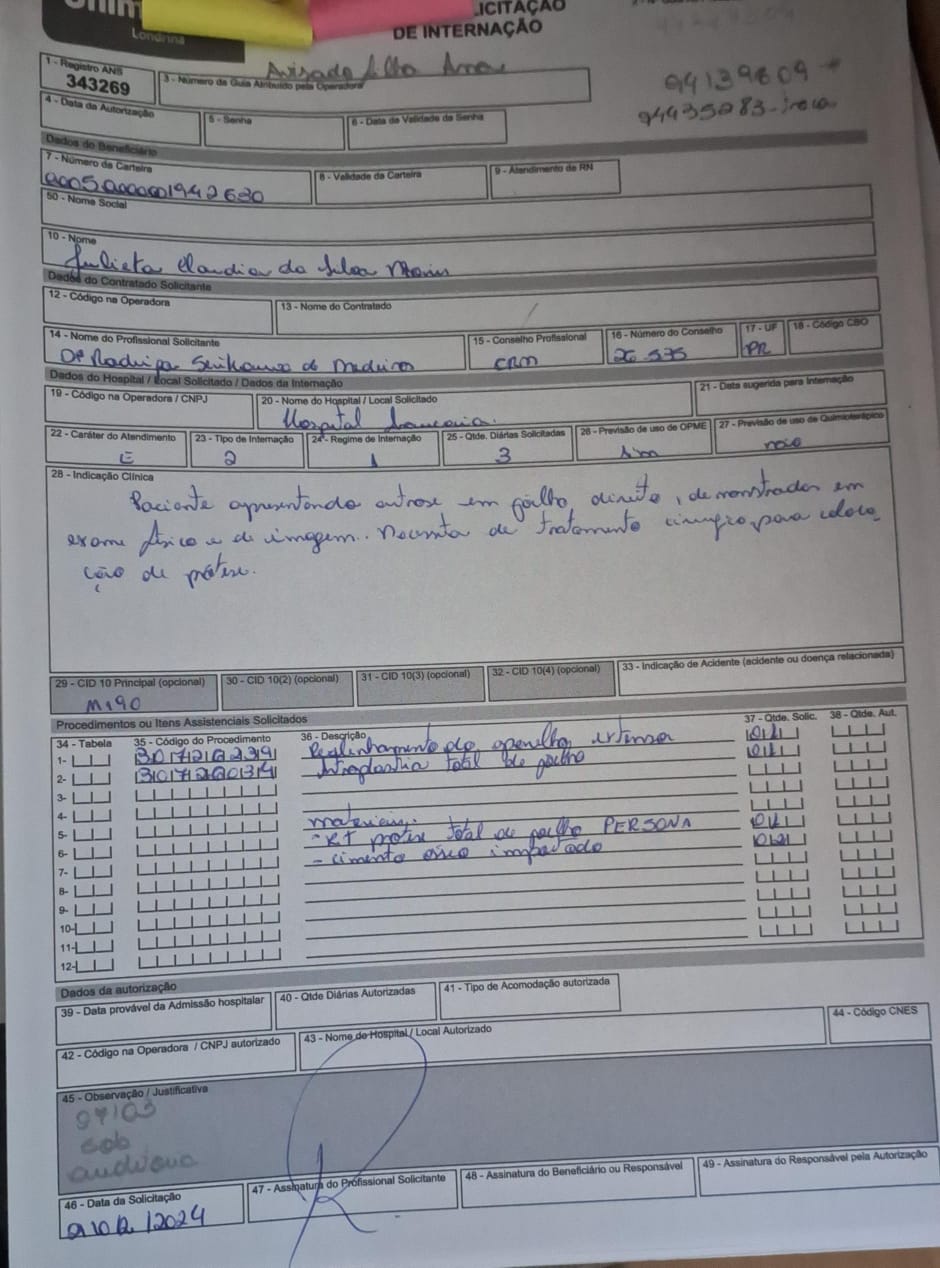 Londrina
ICITAÇÃO
DE INTERNAÇÃO
Avisado filha
94139609
94435283
1 - Registro ANS
343269
3 - Número da Guia Atribuído pela Operadora
4 - Data da Autorização
5 - Senha
6 - Data de Validade da Senha
Dados do Beneficiário
7 - Número da Carteira
8 - Validade da Carteira
9 - Atendimento de RN
50 - Nome Social
10 - Nome
Julieta Claudia da Silva
Dados do Contratado Solicitante
12 - Código na Operadora
13 - Nome do Contratado
14 - Nome do Profissional Solicitante
15 - Conselho Profissional
CRM
16 - Número do Conselho
26.575
17 - UF
PR
18 - Código CBO
Dados do Hospital / Local Solicitado / Dados da Internação
19 - Código na Operadora / CNPJ
20 - Nome do Hospital / Local Solicitado
Hospital
21 - Data sugerida para Internação
22 - Caráter do Atendimento
E
23 - Tipo de Internação
2
24 - Regime de Internação
1
25 - Qtde. Diárias Solicitadas
3
26 - Previsão de uso de OPME
sim
27 - Previsão de uso de Quimioterápico
não
28 - Indicação Clínica
Paciente apresentando artrose em joelho direito, demonstrada em
exame físico e de imagem. Necessita de tratamento cirúrgico para coloca
ção de prótese.
29 - CID 10 Principal (opcional)
M190
30 - CID 10(2) (opcional)
31 - CID 10(3) (opcional)
32 - CID 10(4) (opcional)
33 - Indicação de Acidente (acidente ou doença relacionada)
Procedimentos ou Itens Assistenciais Solicitados
34 - Tabela
35 - Código do Procedimento
36 - Descrição
37 - Qtde. Solic.
38 - Qtde. Aut.
1- Realinhamento do aparelho extensor
2- Artroplastia total de joelho
3-
4-
materiais:
5- - KIT prótese total de joelho PERSONA
6- - cimento ósseo importado
7-
8-
9-
10-
11-
12-
Dados da autorização
39 - Data provável da Admissão hospitalar
40 - Qtde Diárias Autorizadas
41 - Tipo de Acomodação autorizada
42 - Código na Operadora / CNPJ autorizado
43 - Nome do Hospital / Local Autorizado
44 - Código CNES
45 - Observação / Justificativa
sob
46 - Data da Solicitação
47 - Assinatura do Profissional Solicitante
48 - Assinatura do Beneficiário ou Responsável
49 - Assinatura do Responsável pela Autorização